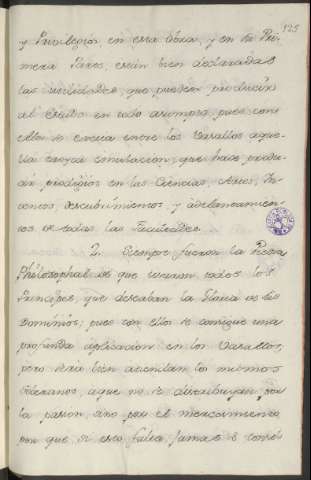 125
y Privilegios en esta Obra, y en su Pri-
mera Parte, están bien declaradas
las utilidades, que pueden producir
al Estado en todo asumpto, pues con
ellos se excita entre los Vasallos aque-
lla emulacion, que hace produ-
cir prodigios en las Ciencias, Artes, In-
ventos, descubrimientos, y adelantamien-
tos de todas las Facultades.
2. Siempre fueron la Piedra
Philosophal de que usaron todos los
Principes, que deseaban la Gloria de sus
Dominios; pues con ellos se consigue una
profunda aplicacion en los Vasallos,
pero será bien atiendan los mismos
Soberanos, a que no se distribuyan por
la pasion, sino por el merecimiento
por que si esto falta, jamas se consi-